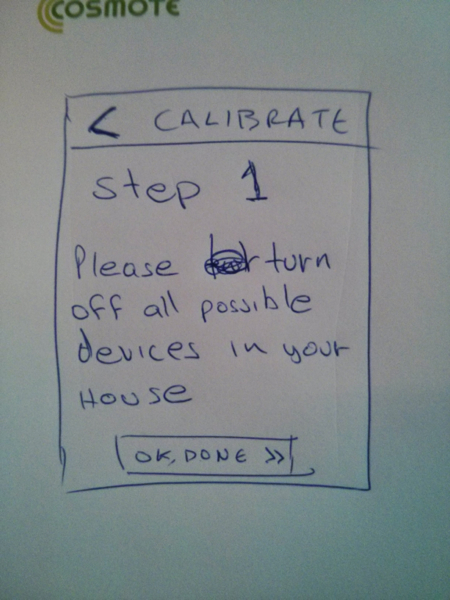 COSMOTE
< CALIBRATE
Step 1
Please turn
off all possible
devices in your
House
OK, DONE >>